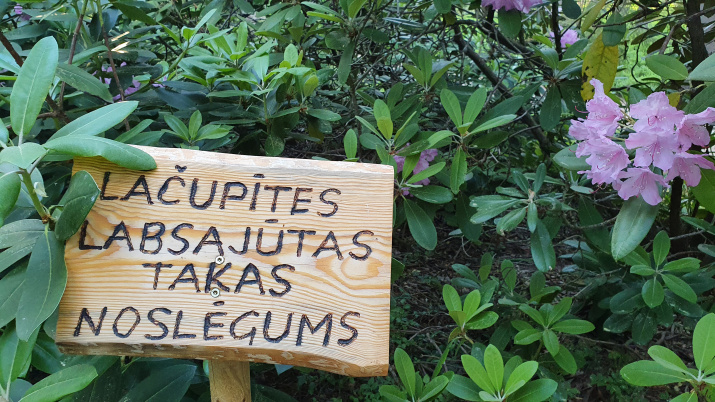 LAČUPĪTES
LABSAJŪTAS
TAKAS
NOSLĒGUMS